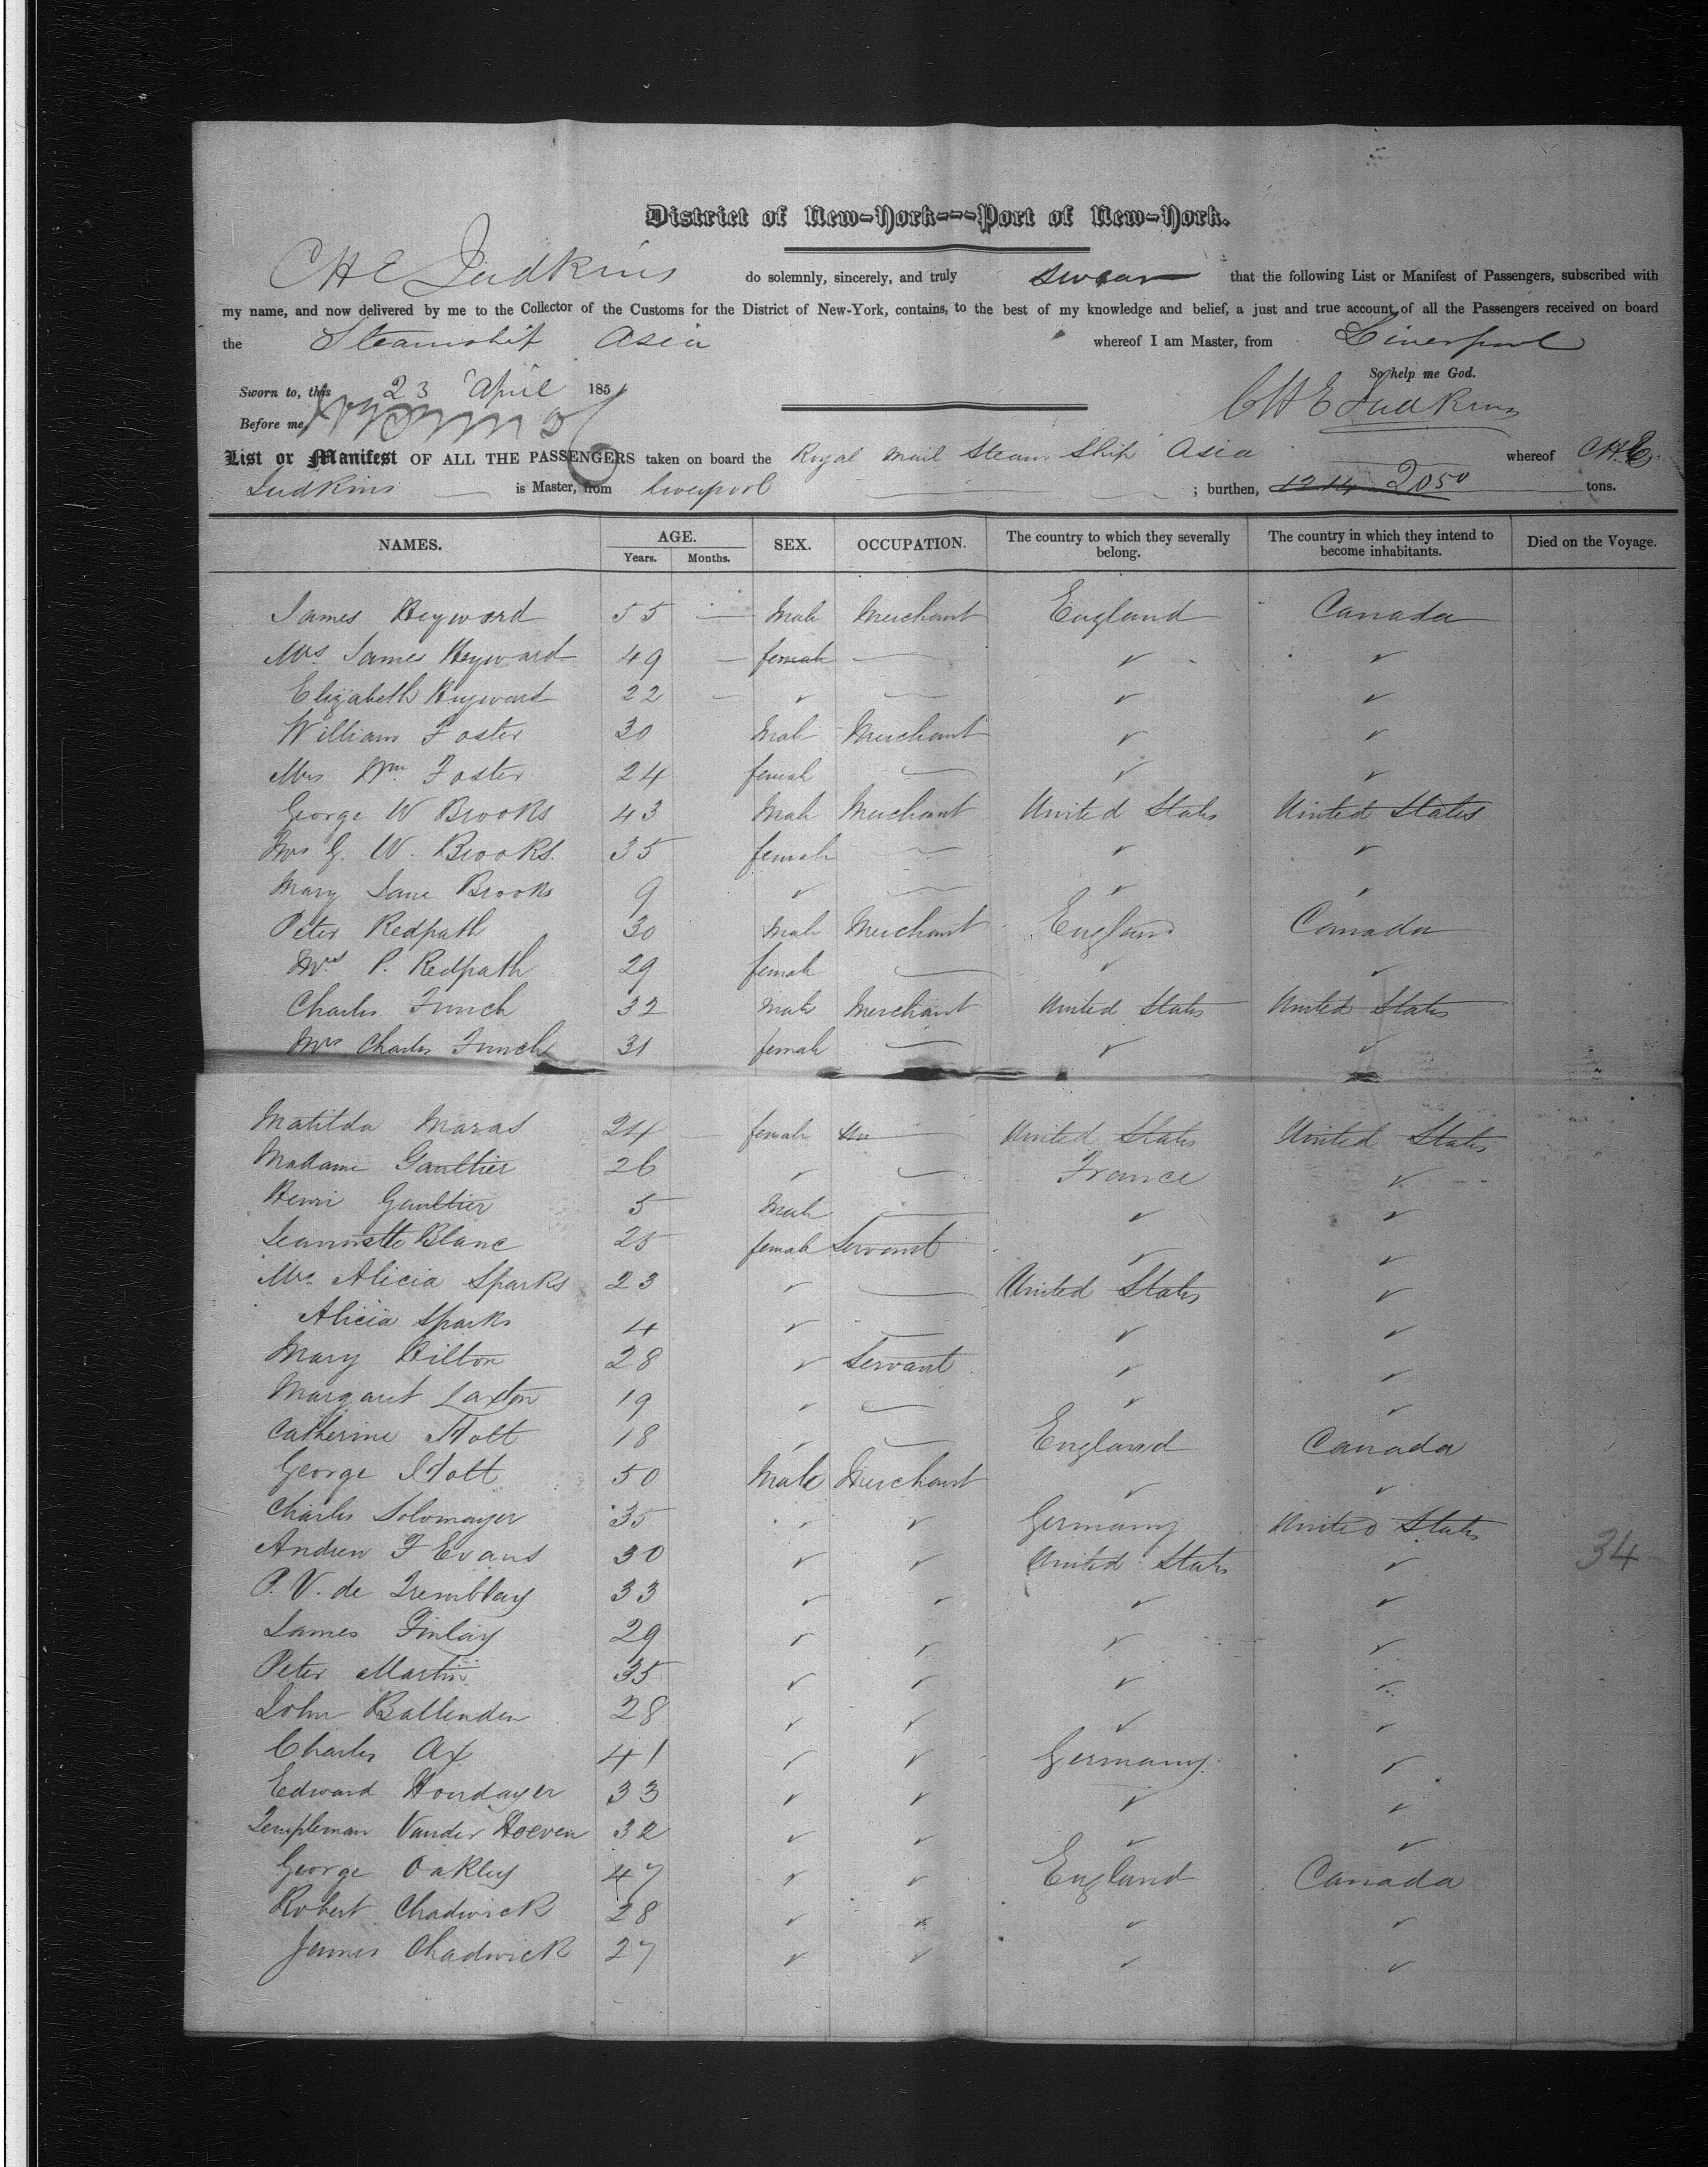 District of New-York---Port of New-York.
C H E Judkins do solemnly, sincerely, and truly swear that the following List or Manifest of Passengers, subscribed with
my name, and now delivered by me to the Collector of the Customs for the District of New-York, contains, to the best of my knowledge and belief, a just and true account of all the Passengers received on board
the Steamship Asia whereof I am Master, from Liverpool
So help me God.
Sworn to, this 23 April 185
C H E Judkins
Before me,
List or Manifest OF ALL THE PASSENGERS taken on board the Royal Mail Steam Ship Asia whereof C.H.E.
Judkins is Master, from Liverpool ; burthen, 1214 2050 tons.
NAMES. AGE. SEX. OCCUPATION. The country to which they severally belong. The country in which they intend to become inhabitants. Died on the Voyage.
Years. Months.
James Heyward 55 — Male Merchant England Canada
Mrs James Heyward 49 — female — ✓ ✓
Elizabeth Heyward 22 — ✓ — ✓ ✓
William Foster 30 Male Merchant ✓ ✓
Mrs Wm Foster 24 female — ✓ ✓
George W Brooks 43 Male Merchant United States United States
Mrs G. W. Brooks. 35 female — ✓ ✓
Mary Jane Brooks 9 ✓ — ✓ ✓
Peter Redpath 30 Male Merchant England Canada
Mrs P. Redpath 29 female — ✓ ✓
Charles Funch 32 Male Merchant United States United States
Mrs Charles Funch 31 female — ✓ ✓
Matilda Maras 24 — female — United States United States
Madame Gaultier 26 ✓ — France ✓
Henri Gaultier 5 Male — ✓ ✓
Jeannette Blanc 25 female Servant ✓ ✓
Mrs Alicia Sparks 23 ✓ — United States ✓
Alicia Sparks 4 ✓ — ✓ ✓
Mary Hilton 28 ✓ Servant ✓ ✓
Margaret Laxton 19 ✓ — ✓ ✓
Catherine Holt 18 ✓ — England Canada
George Holt 50 Male Merchant ✓ ✓
Charles Solomayer 35 ✓ ✓ Germany United States
Andrew F Evans 30 ✓ ✓ United States ✓ 34
P. V. de Tremblay 33 ✓ ✓ ✓ ✓
James Finlay 29 ✓ ✓ ✓ ✓
Peter Martin 35 ✓ ✓ ✓ ✓
John Ballenden 28 ✓ ✓ ✓ ✓
Charles Ax 41 ✓ ✓ Germany ✓
Edward Hondayer 33 ✓ ✓ ✓ ✓
Templeman Vander Hoeven 32 ✓ ✓ ✓ ✓
George Oakley 47 ✓ ✓ England Canada
Robert Chadwick 28 ✓ ✓ ✓ ✓
James Chadwick 27 ✓ ✓ ✓ ✓